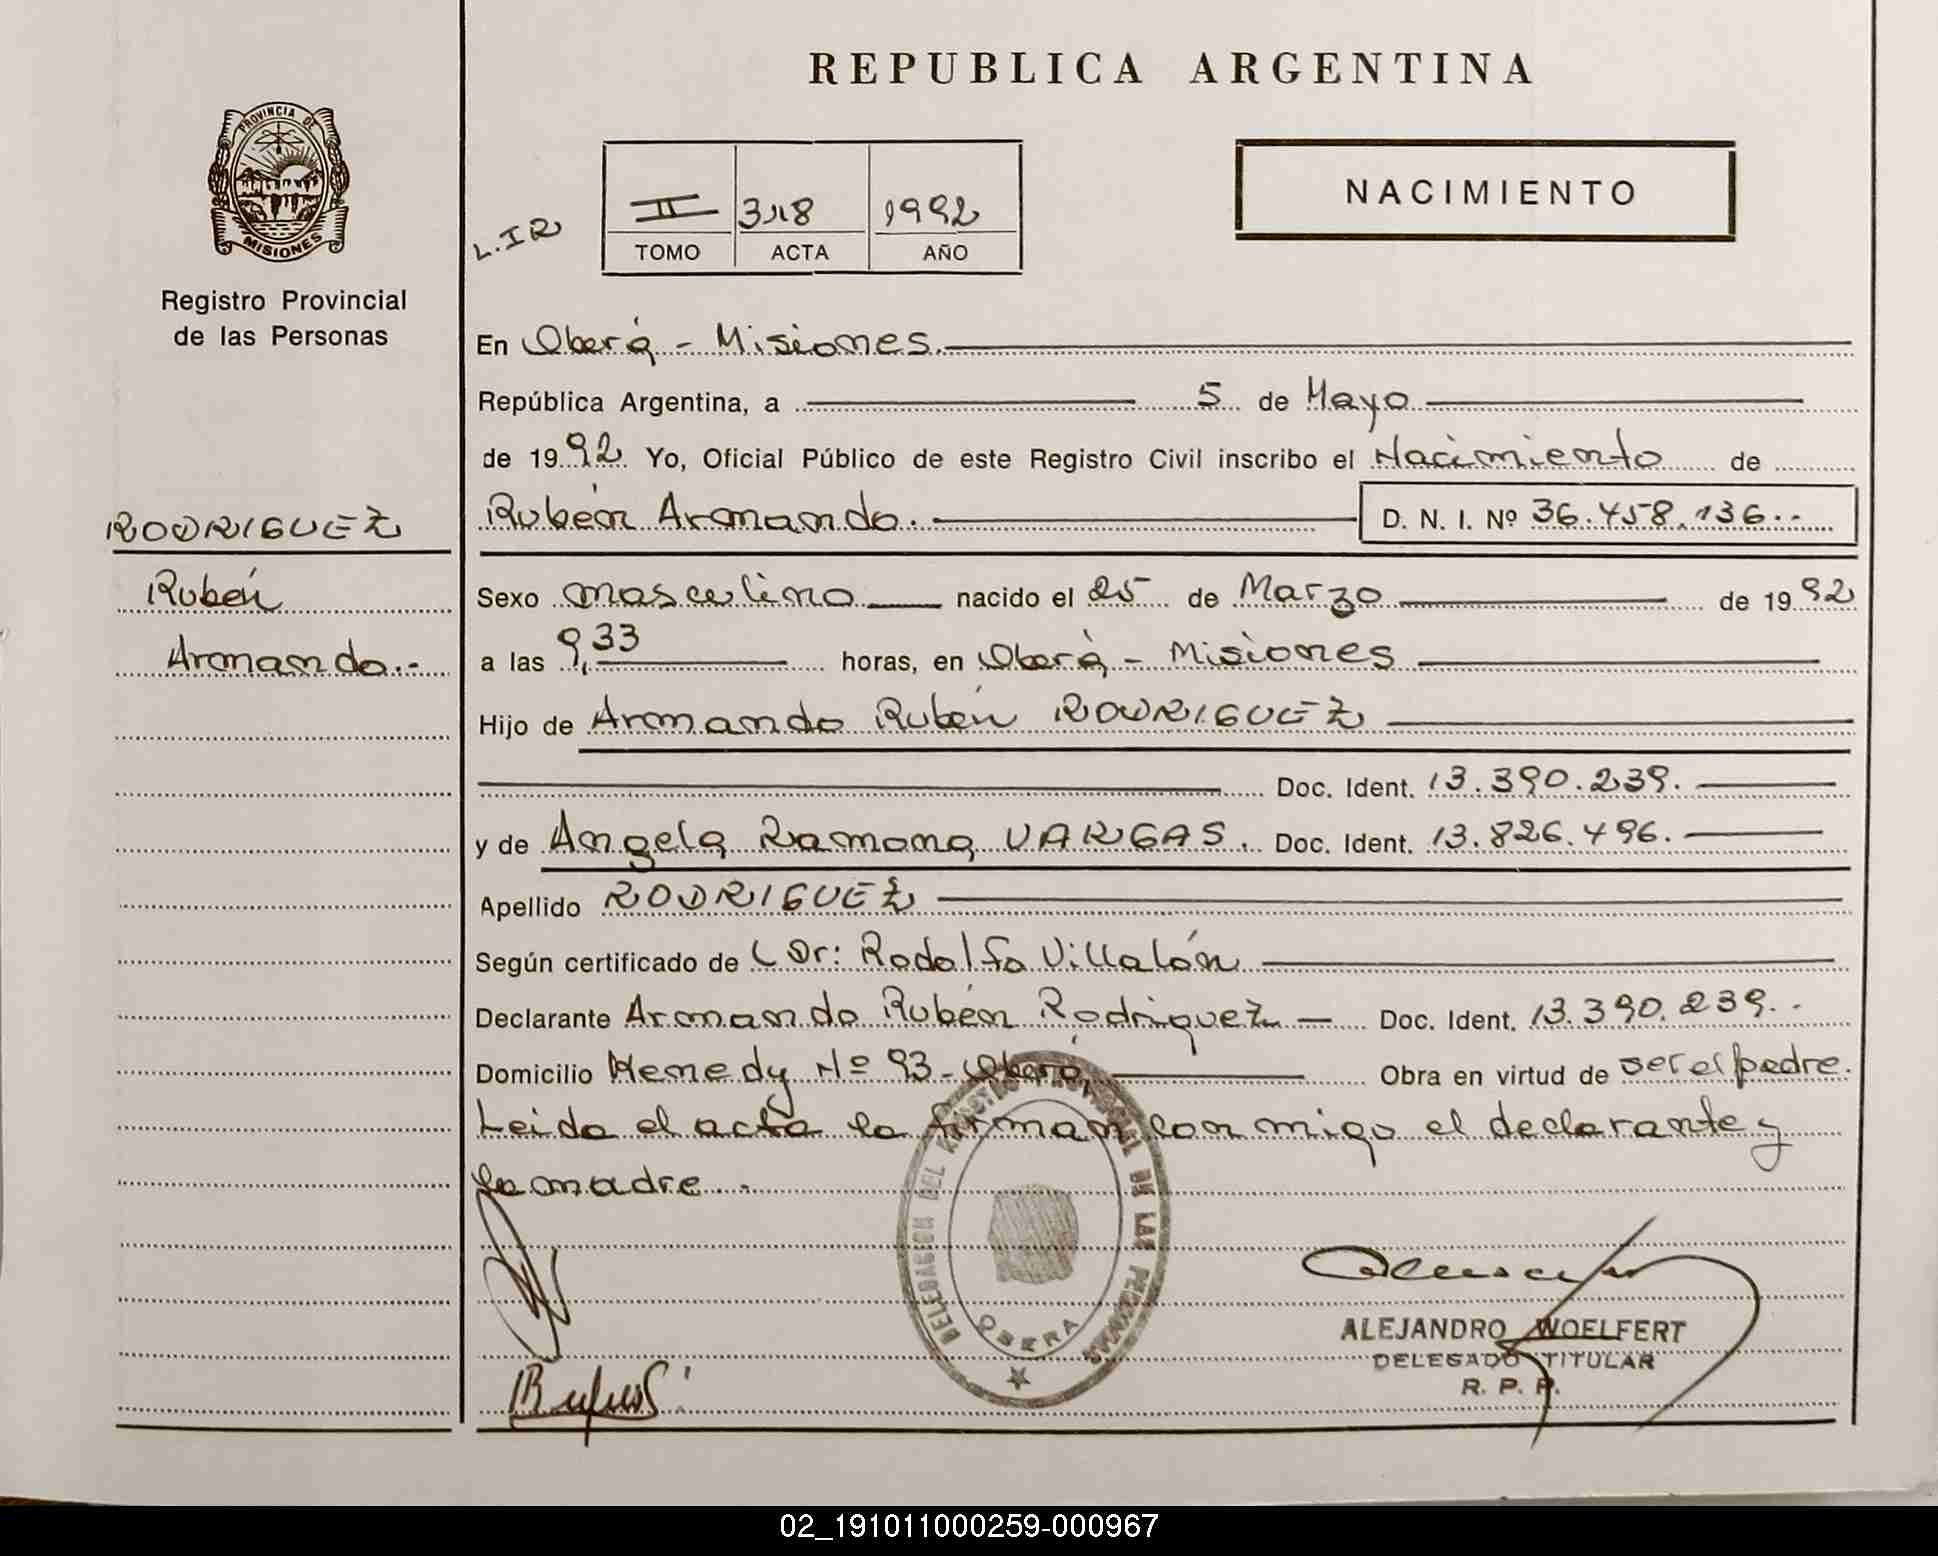 REPUBLICA ARGENTINA
PROVINCIA DE
MISIONES
Registro Provincial
de las Personas
NACIMIENTO
L. I R
II 318 1992
TOMO ACTA AÑO
En Oberá - Misiones.
República Argentina, a 5 de Mayo
de 1992 Yo, Oficial Público de este Registro Civil inscribo el Nacimiento de
Rubén Armando. D. N. I. Nº 36.458.136.-
RODRIGUEZ
Rubén
Armando.-
Sexo masculino nacido el 25 de Marzo de 1992
a las 9,33 horas, en Oberá - Misiones
Hijo de Armando Rubén RODRIGUEZ
Doc. Ident. 13.390.239.
y de Angela Ramona VARGAS. Doc. Ident. 13.826.496.
Apellido RODRIGUEZ
Según certificado de Dr: Rodolfo Villalón
Declarante Armando Rubén Rodriguez Doc. Ident. 13.390.239.-
Domicilio Kenedy Nº 93 - Oberá, Obra en virtud de ser el padre.
Leida el acta la firman con migo el declarante y
la madre.-
DELEGACION DEL REGISTRO PROVINCIAL DE LAS PERSONAS
OBERA
ALEJANDRO WOELFERT
DELEGADO TITULAR
R. P. P.
02_191011000259-000967